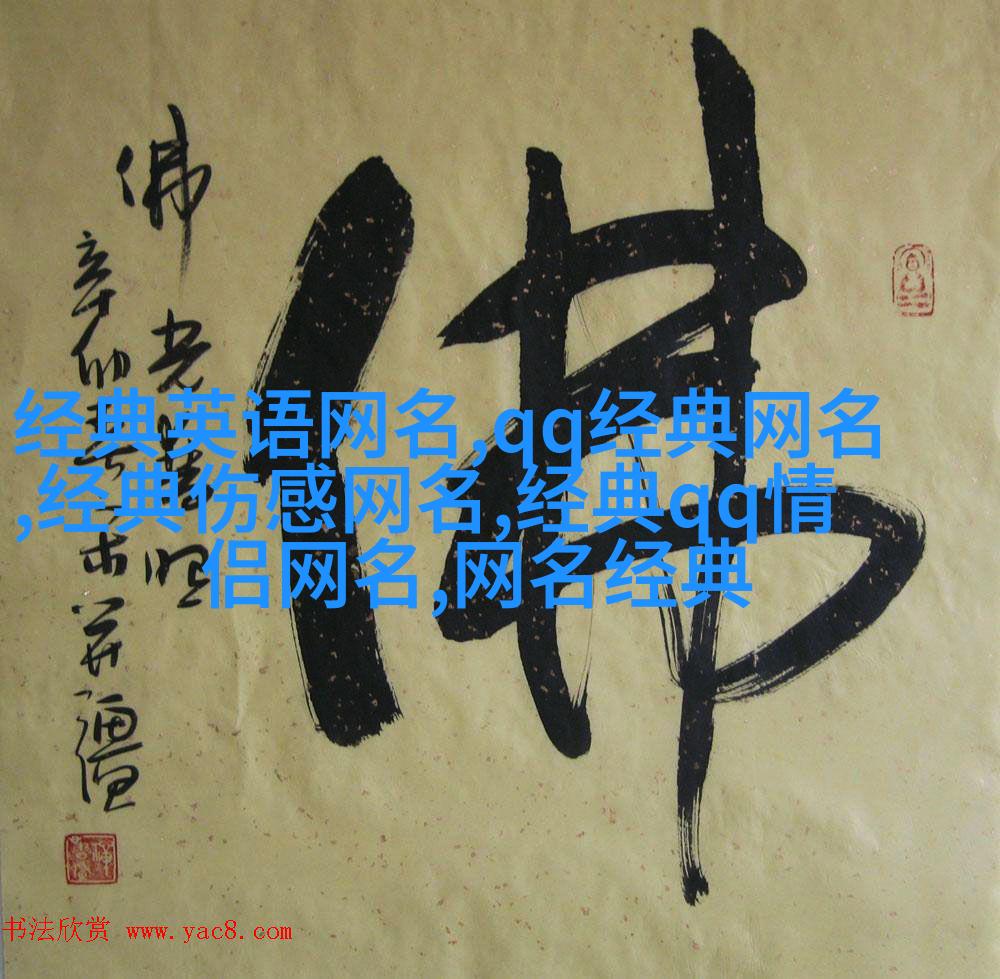 佛
佛光普照
辛卯春
经典英语网名,qq经典网名
,经典伤感网名,经典qq情
侣网名,网名经典
书法欣赏 www.yac8.com